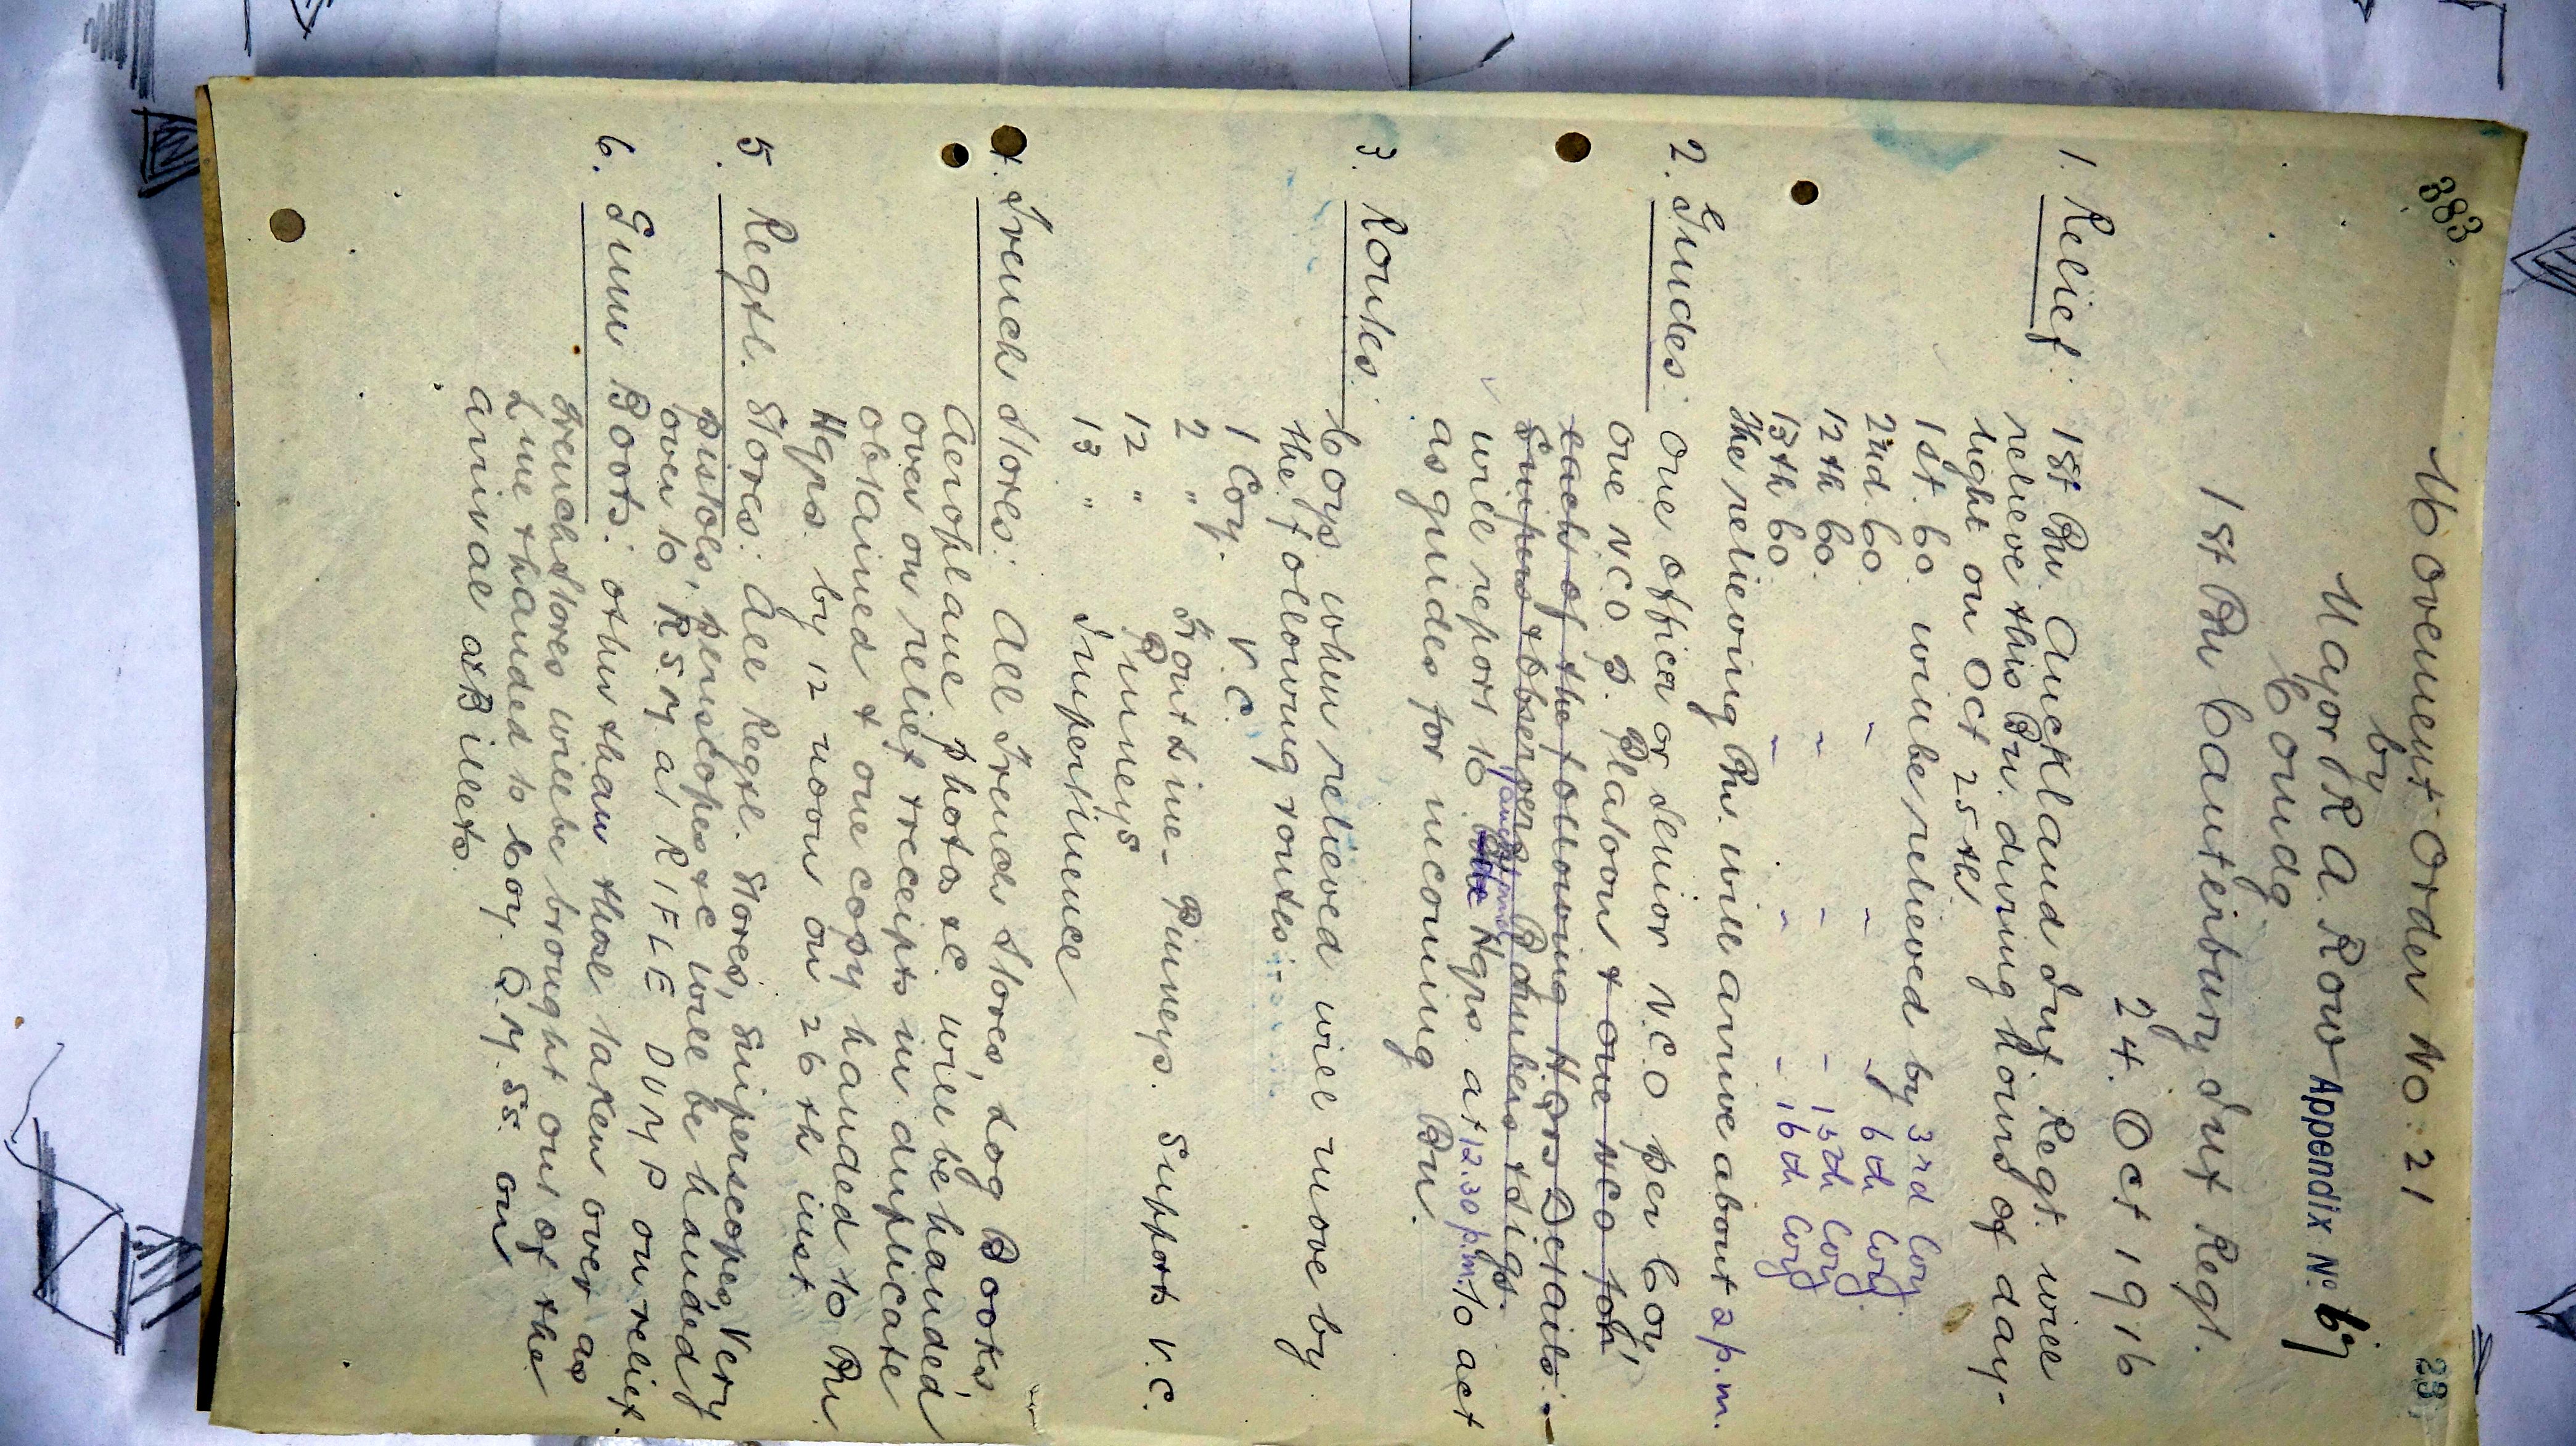 383
23
Movement Order No. 21
by
Major R A. Row
Comdg
1st Bn Canterbury Inf Regt.
Appendix No 67
24. Oct 1916
1. Relief: 1st Bn. Auckland Inf Regt. will
relieve this Bn. during hours of day-
light on Oct 25th
1st. Co. will be relieved by 3rd Coy.
2nd Co. " " " 6th Coy.
12th Co. " " " 15th Coy
13th Co. " " " 16th Coy
The relieving Bn. will arrive about 2 p.m.
2. Guides: One officer or Senior N.C.O per Coy,
one NCO p. Platoon & one NCO for
each of the following H.Qrs Details:-
Snipers & Observers, Bombers & Sigs.
will report to Hqrs. at 12.30 p.m. to act
as guides for incoming Bn.
3. Routes: Coys when relieved will move by
the following routes:-
1 Coy. V.C.
2 " Front Line - Pinneys. Supports V.C.
12 " Pinneys
13 " Impertinence
4. Trench Stores: All Trench Stores, Log Books,
Aeroplane photos &c. will be handed
over on relief & receipts in duplicate
obtained & one copy handed to Bn.
Hqrs. by 12 noon on 26th inst
5. Regtl. Stores: All Regtl. Stores, Sniperscopes, Very
pistols, periscopes &c will be handed
over to R.S.M. at RIFLE DUMP on relief.
6. Gum Boots: other than those taken over as
trench stores will be brought out of the
Line & handed to Coy. Q.M.Ss. on
arrival at Billets.